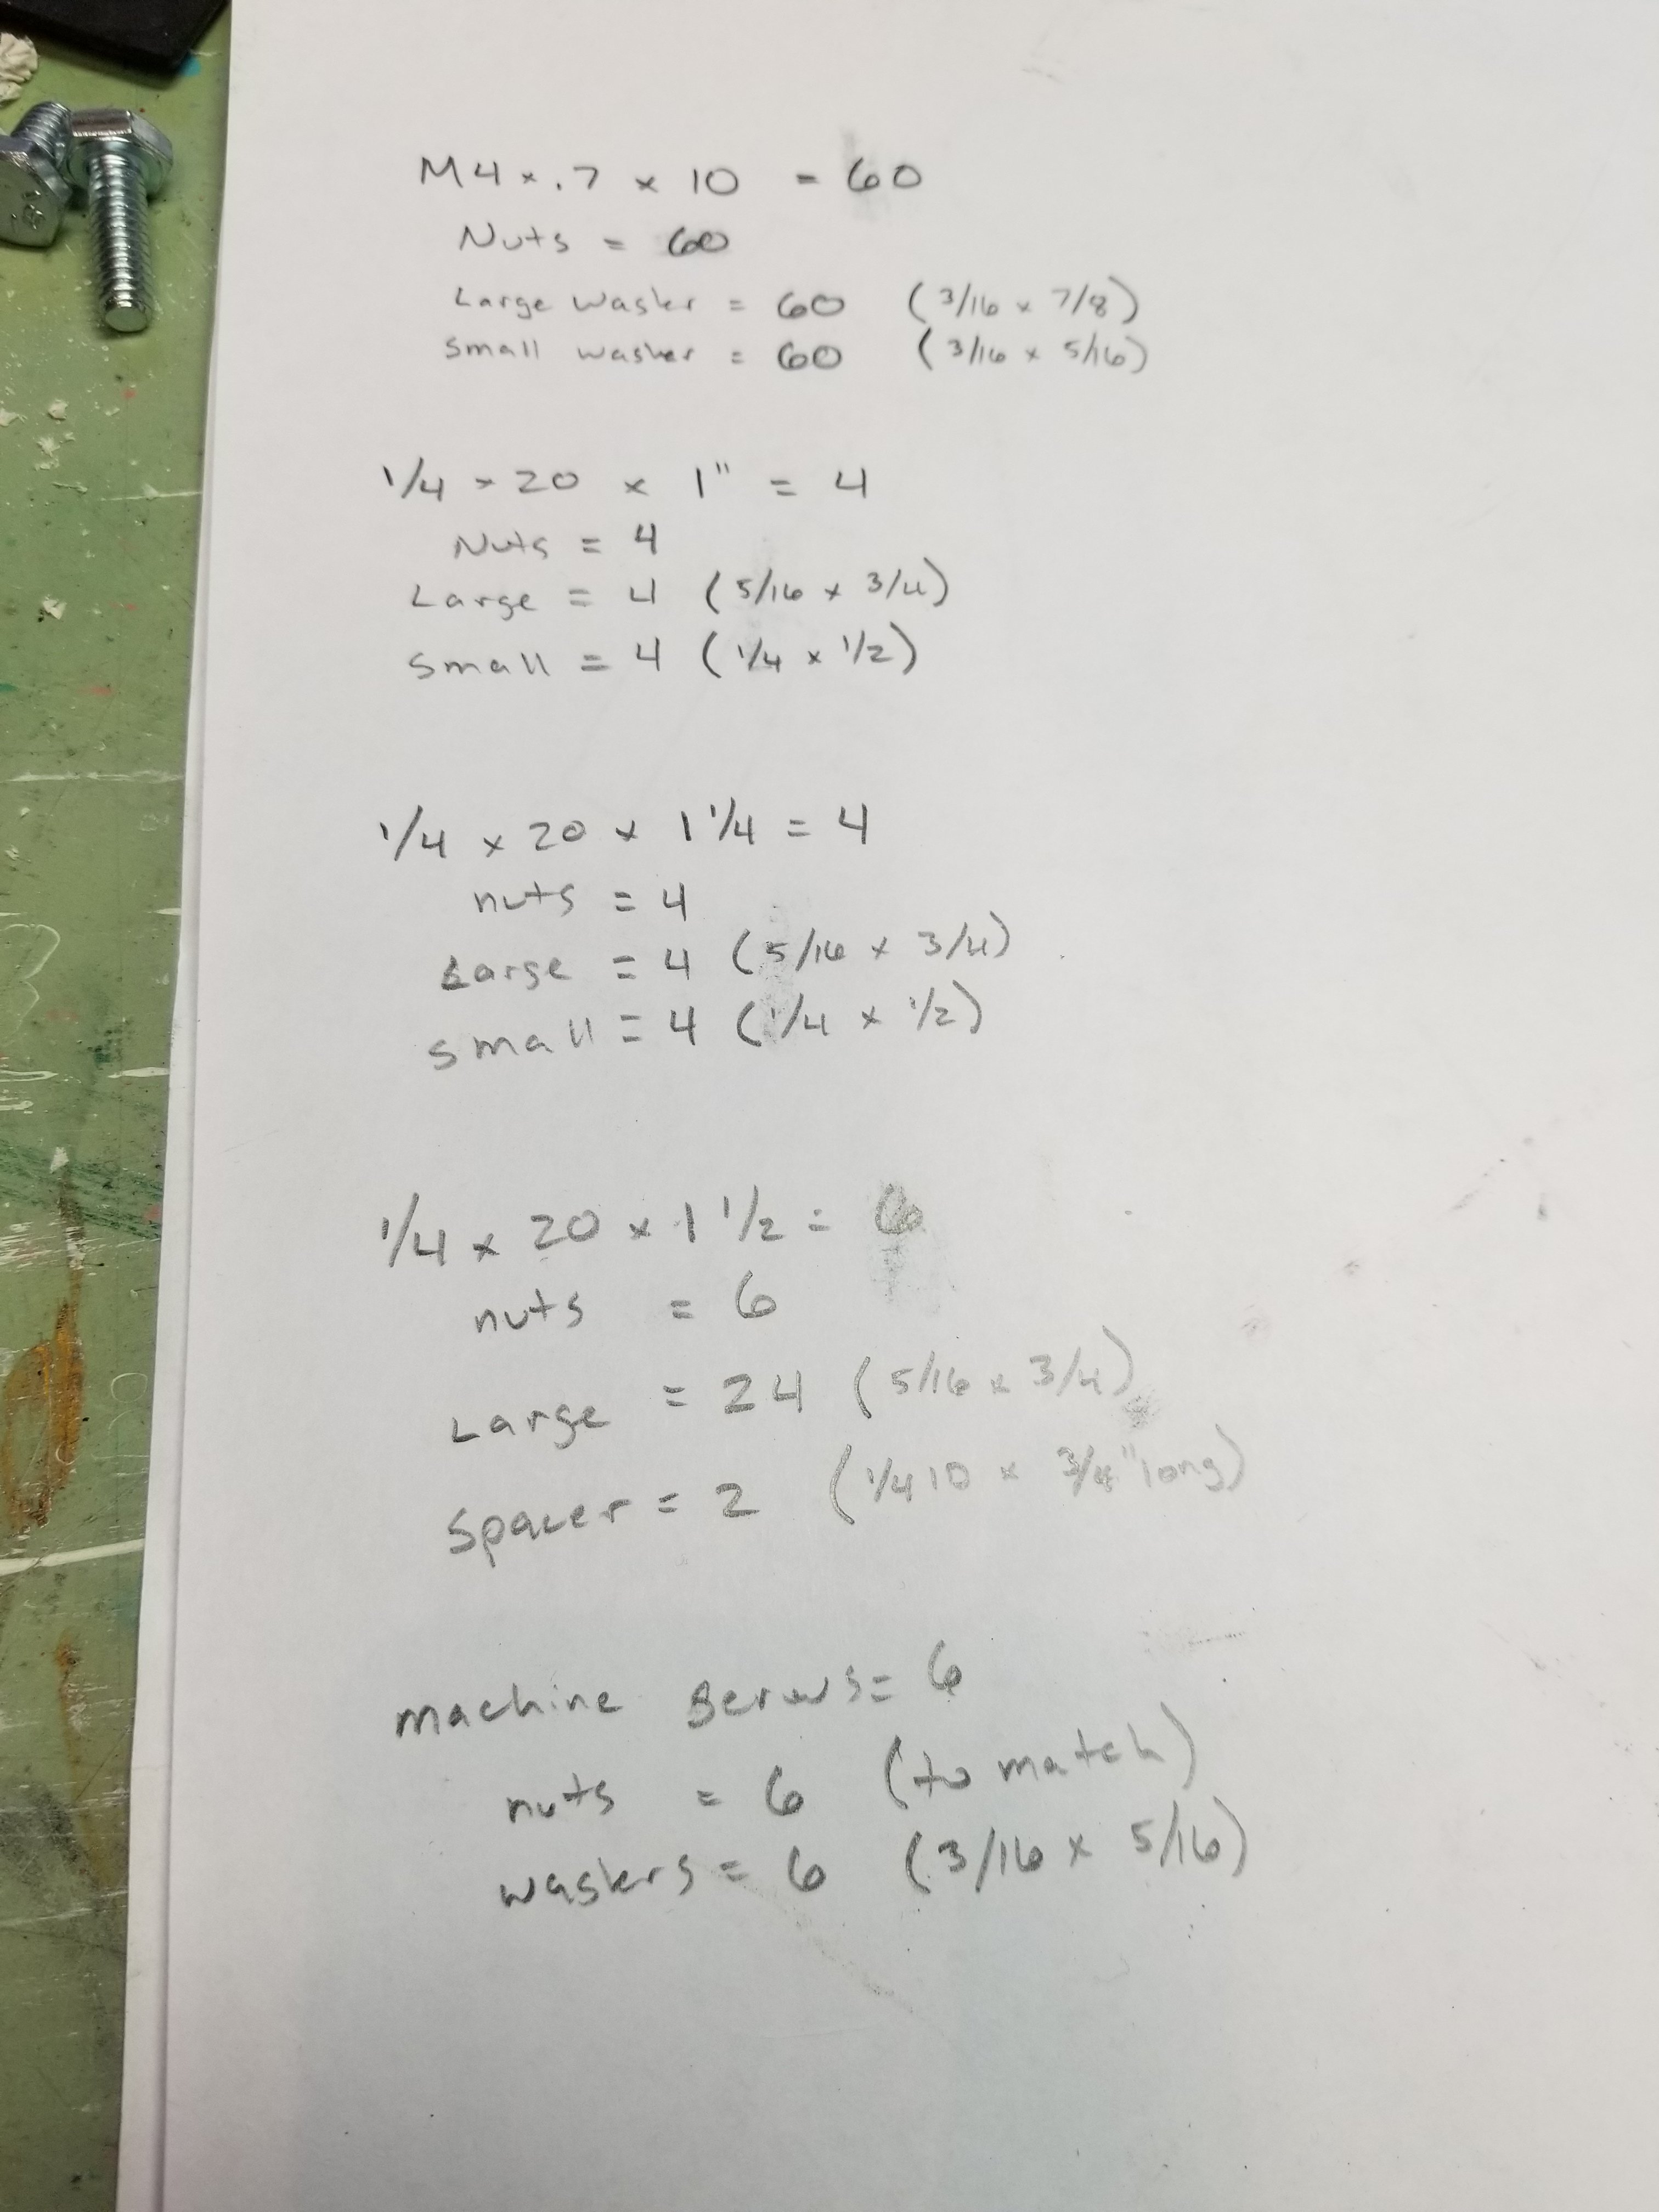 M4 x .7 x 10 = 60
Nuts = 60
Large washer = 60 (3/16 x 7/8)
Small washer = 60 (3/16 x 5/16)
1/4 x 20 x 1" = 4
Nuts = 4
Large = 4 (5/16 x 3/4)
Small = 4 (1/4 x 1/2)
1/4 x 20 x 1 1/4 = 4
nuts = 4
Large = 4 (5/16 x 3/4)
small = 4 (1/4 x 1/2)
1/4 x 20 x 1 1/2 = 6
nuts = 6
Large = 24 (5/16 x 3/4)
Spacer = 2 (1/4 ID x 3/4" long)
machine screws = 6
nuts = 6 (to match)
washers = 6 (3/16 x 5/16)